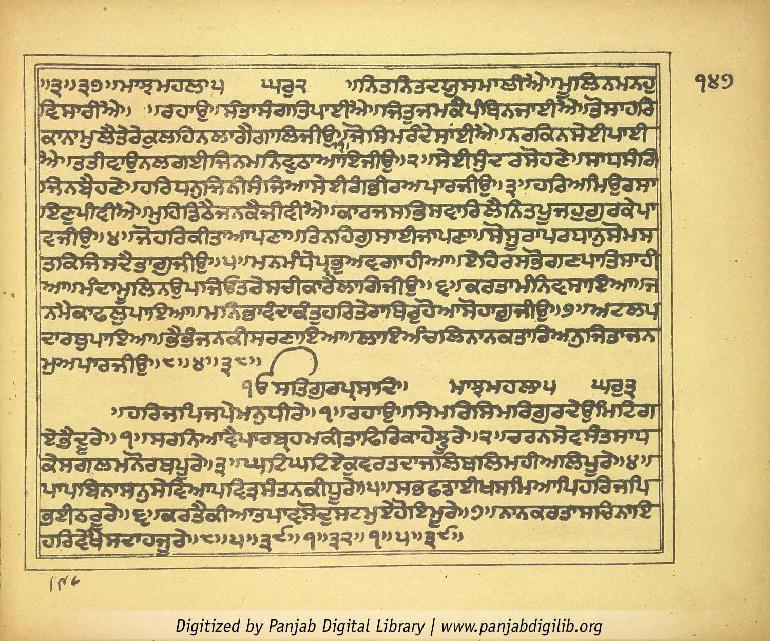 ॥੩॥੩੭॥ਮਾਝਮਹਲਾ੫ ਘਰੁ੨ ॥ਨਿਤਨਿਤਦਯੁਸਮਾਲੀਐ॥ਮੂਲਿਨਮਨਹੁ
ਵਿਸਾਰੀਐ॥ ॥ਰਹਾਉ॥ਸੰਤਾਸੰਗਤਿਪਾਈਐ॥ਜਿਤੁਜਮਕੈਪੰਥਿਨਜਾਈਐ॥ਤੋਸਾਹਰਿ
ਕਾਨਾਮੁਲੈਤੇਰੇਕੁਲਹਿਨਲਾਗੈਗਾਲਿਜੀਉ॥੧॥ਜੋਸਿਮਰੰਦੇਸਾਂਈਐ॥ਨਰਕਿਨਸੇਈਪਾਈ
ਐ॥ਤਤੀਵਾਉਨਲਗਈਜਿਨਮਨਿਵੁਠਾਆਇਜੀਉ॥੨॥ਸੇਈਸੁੰਦਰਸੋਹਣੇ॥ਸਾਧਸੰਗਿ
ਜਿਨਬੈਹਣੇ॥ਹਰਿਧਨੁਜਿਨੀਸੰਜਿਆਸੇਈਗੰਭੀਰਅਪਾਰਜੀਉ॥੩॥ਹਰਿਅਮਿਉਰਸਾ
ਇਣੁਪੀਵੀਐ॥ਮੁਹਿਡਿਠੈਜਨਕੈਜੀਵੀਐ॥ਕਾਰਜਸਭਿਸਵਾਰਿਲੈਨਿਤਪੂਜਹੁਗੁਰਕੇਪਾ
ਵਜੀਉ॥੪॥ਜੋਹਰਿਕੀਤਾਆਪਣਾ॥ਤਿਨਹਿਗੁਸਾਈਜਾਪਣਾ॥ਸੋਸੂਰਾਪਰਧਾਨੁਸੋਮਸ
ਤਕਿਜਿਸਦੈਭਾਗੁਜੀਉ॥੫॥ਮਨਮੰਧੇਪ੍ਰਭੁਅਵਗਾਹੀਆ॥ਏਹਿਰਸਭੋਗਣਪਾਤਿਸਾਹੀ
ਆ॥ਮੰਦਾਮੂਲਿਨਉਪਜਿਓਤਰੇਸਚੀਕਾਰੈਲਾਗਿਜੀਉ॥੬॥ਕਰਤਾਮੰਨਿਵਸਾਇਆ॥ਜ
ਨਮੈਕਾਫਲੁਪਾਇਆ॥ਮਨਿਭਾਵੰਦਾਕੰਤੁਹਰਿਤੇਰਾਥਿਰੁਹੋਆਸੋਹਾਗੁਜੀਉ॥੭॥ਅਟਲਪ
ਦਾਰਥੁਪਾਇਆ॥ਭੈਭੰਜਨਕੀਸਰਣਾਇਆ॥ਲਾਇਅੰਚਲਿਨਾਨਕਤਾਰਿਅਨੁਜਿਤਾਜਨ
ਮੁਅਪਾਰਜੀਉ॥੮॥੪॥੩੮॥
ੴਸਤਿਗੁਰਪ੍ਰਸਾਦਿ॥ ਮਾਝਮਹਲਾ੫ ਘਰੁ੩
॥ਹਰਿਜਪਿਜਪੇਮਨੁਧੀਰੇ॥੧॥ਰਹਾਉ॥ਸਿਮਰਿਸਿਮਰਿਗੁਰਦੇਉਮਿਟਿਗ
ਏਭੈਦੂਰੇ॥੧॥ਸਰਨਿਆਵੈਪਾਰਬ੍ਰਹਮਕੀਤਾਫਿਰਿਕਾਹੇਝੂਰੇ॥੨॥ਚਰਨਸੇਵਸੰਤਸਾਧ
ਕੇਸਗਲਮਨੋਰਥਪੂਰੇ॥੩॥ਘਟਿਘਟਿਏਕੁਵਰਤਦਾਜਲਿਥਲਿਮਹੀਅਲਿਪੂਰੇ॥੪॥
ਪਾਪਬਿਨਾਸਨੁਸੇਵਿਆਪਵਿਤ੍ਰਸੰਤਨਕੀਧੂਰੇ॥੫॥ਸਭਛਡਾਈਖਸਮਿਆਪਿਹਰਿਜਪਿ
ਭਈਠਰੂਰੇ॥੬॥ਕਰਤੈਕੀਆਤਪਾਵਸੋਦੁਸਟਮੁਏਹੋਇਮੂਰੇ॥੭॥ਨਾਨਕਰਤਾਸਚਿਨਾਇ
ਹਰਿਵੇਖੈਸਦਾਹਜੂਰੇ॥੮॥੫॥੩੯॥੧॥੩੨॥੧॥੫॥੩੯॥
੧੪੭
Digitized by Panjab Digital Library | www.panjabdigilib.org